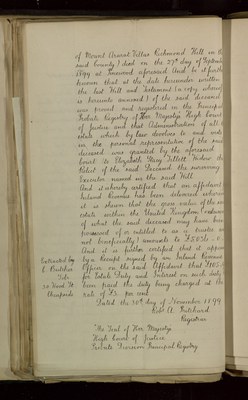 of Mount Ararat Villas Richmond Hill in the
said County died on the 27th day of September
1899 at Twinwood aforesaid And be it further
known that at the date hereunder written
the last Will and Testament (a copy whereof
is hereunto annexed) of the said deceased
was proved and registered in the Principal
Probate Registry of Her Majesty's High Court
of Justice and that Administration of all the
estate which by law devolves to and vests
in the personal representative of the said
deceased was granted by the aforesaid
Court to Elizabeth Mary Widow the
Relict of the said Deceased the surviving
Executor named in the said Will
And it is hereby certified that an affidavit for
Inland Revenue has been delivered wherein
it is shewn that the gross value of the said
estate within the United Kingdom (exclusive
of what the said deceased may have been
possessed of or entitled to as a trustee and
not beneficially) amounts to
And it is further certified that it appears
by a Receipt signed by an Inland Revenue
Officer on the said Affidavit that
for Estate Duty and Interest on such duty
been paid the duty being charged at the
rate of £3 per cent
Dated the 30th day of November 1899
Robt A Pritchard
Registrar
The Seal of Her Majesty's
High Court of Justice
Probate Division Principal Registry
Extracted by
Cheapside